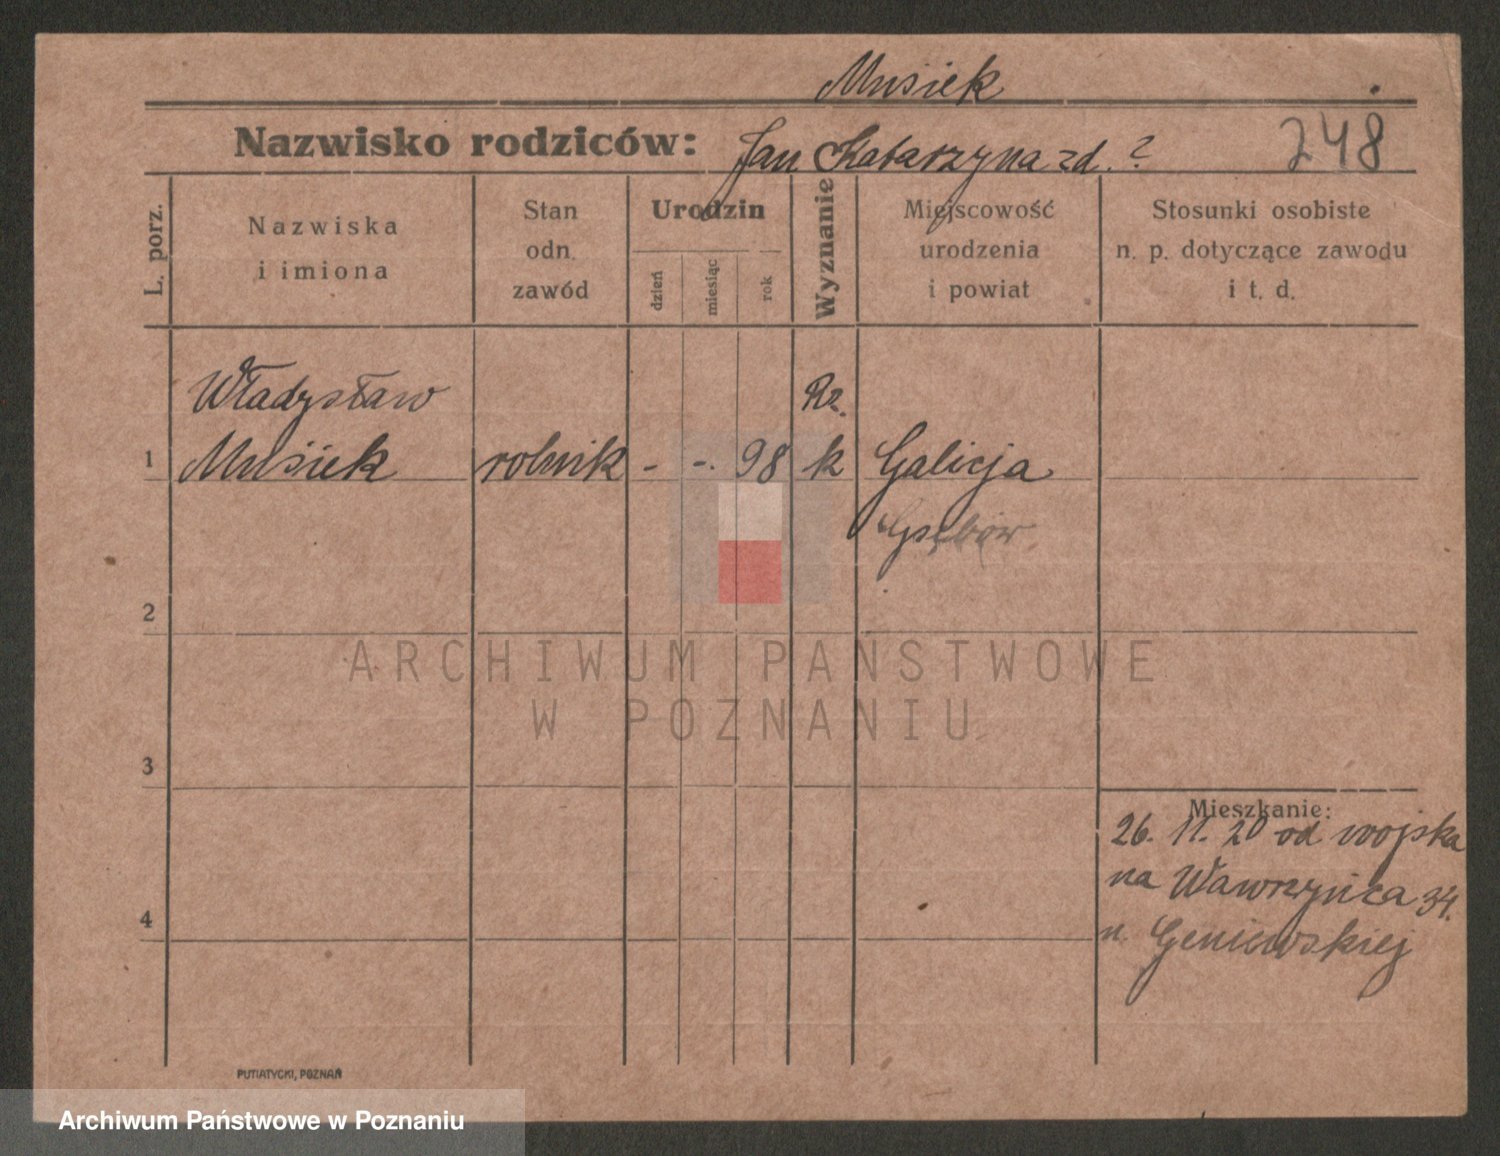 Musiek
Nazwisko rodziców: Jan Katarzyna zd. ? 248
L. porz.
Nazwiska
i imiona
Stan
odn.
zawód
Urodzin
dzień
miesiąc
rok
Wyznanie
Miejscowość
urodzenia
i powiat
Stosunki osobiste
n. p. dotyczące zawodu
i t. d.
Władysław Rz.
1 Musiek rolnik - -. 98 k Galicja
2
ARCHIWUM PAŃSTWOWE
W POZNANIU
3
Mieszkanie:
26. 11. 20 od wojska
na Wawrzyńca 34.
4
u. Geniewskiej
PUTIATYCKI, POZNAŃ
Archiwum Państwowe w Poznaniu